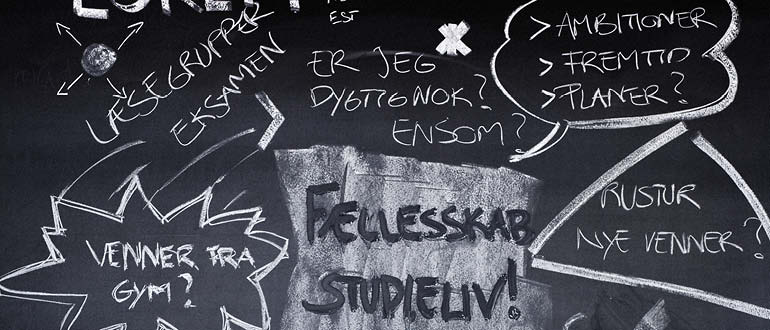 EST
LÆSEGRUPPER
EKSAMEN
ER JEG
DYGTIG NOK?
ENSOM?
> AMBITIONER
> FREMTID
> PLANER?
VENNER FRA
GYM?
FÆLLESSKAB
STUDIELIV!
RUSTUR
NYE VENNER?